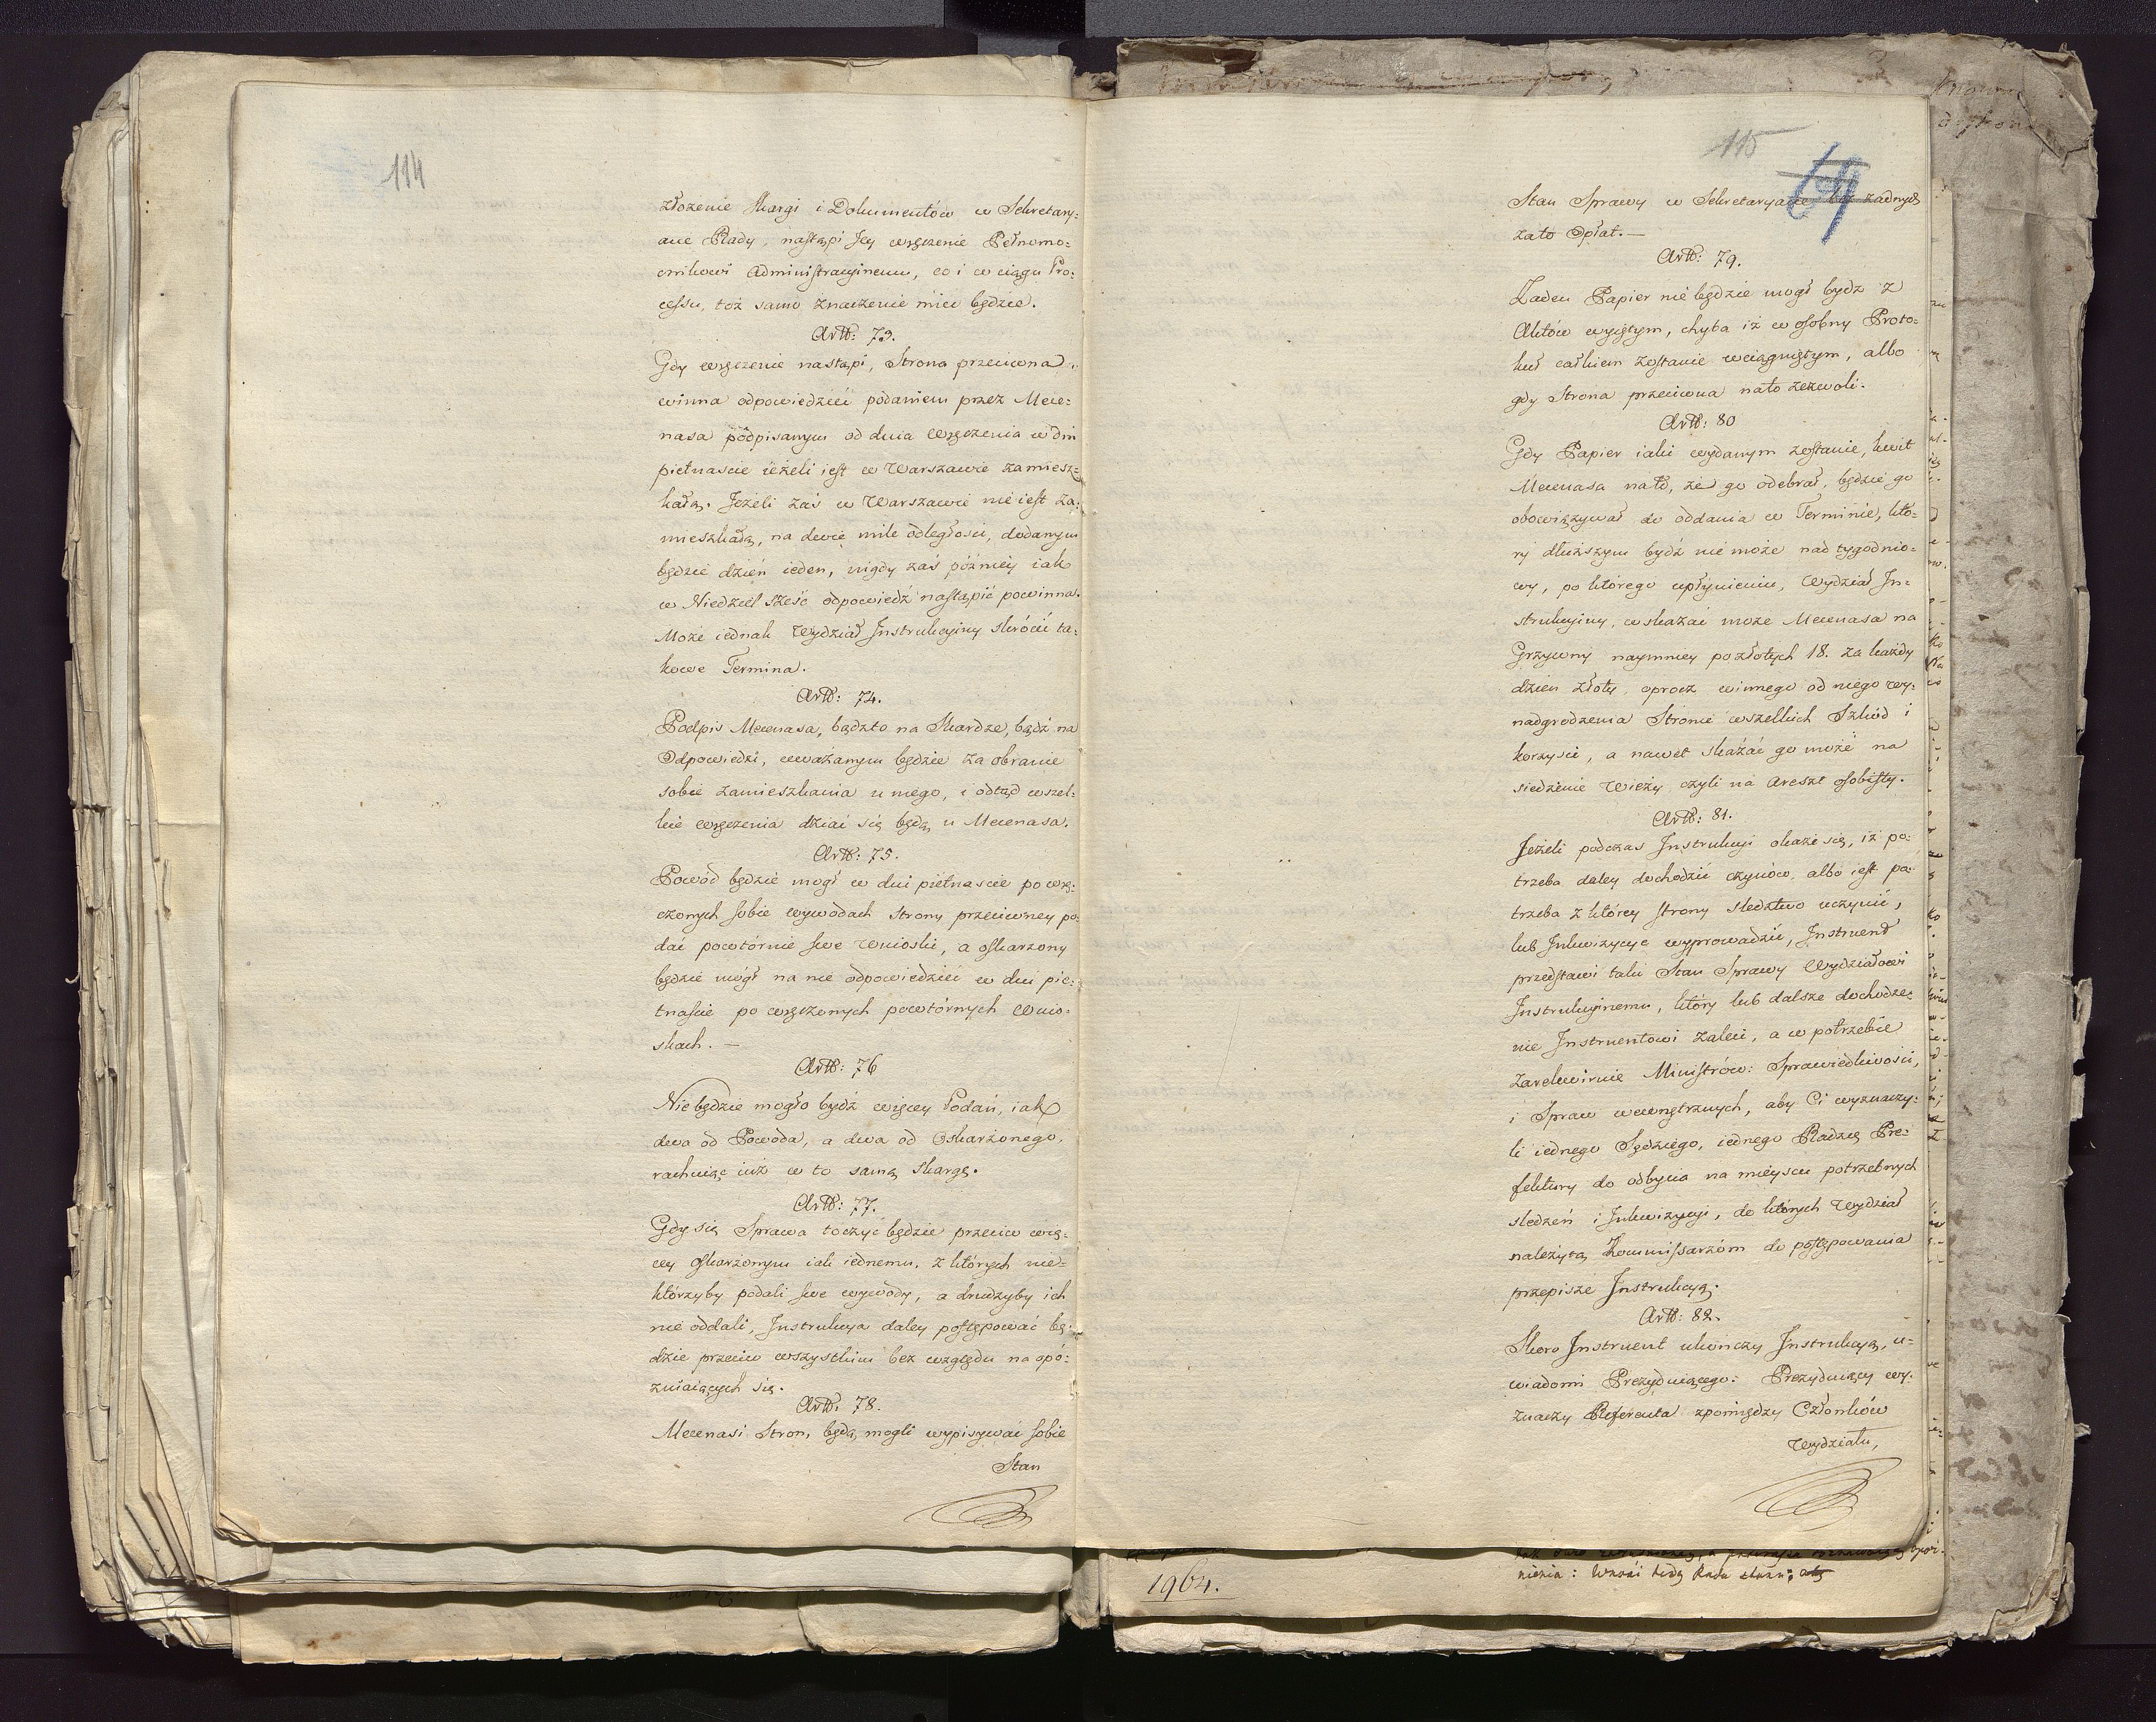 114
złożenie skargi i Dokumentów w Sekretary:
acie Rady, nastąpi Jey wręczenie Pełnomo:
cnikowi Administracyinemu, co i w ciągu Pro:
cessu, toż samo znaczenie mieć będzie.
Artt: 73.
Gdy wręczenie nastąpi, Strona przeciwna
winna odpowiedzieć podaniem przez Mece:
nasa podpisanym od dnia wręczenia w dni
pietnascie ieżeli iest w Warszawie zamiesz:
kałą. Jeżeli zaś w Warszawie nie iest za:
mieszkałą, na dwie mile odległości, dodanym
będzie dzień ieden, nigdy zaś póżniey iak
w Niedziel sześć odpowiedź nastąpić powinna.
Może iednak Wydział Instrukcyiny skrócić ta:
kowe Termina.
Artt: 74.
Podpis Mecenasa, bądzto na Skardze, bądź na
Odpowiedzi, uważanym będzie za obranie
sobie zamieszkania u niego, i odtąd wszel:
kie wręczenia dziać się będą u Mecenasa.
Artt: 75.
Powód będzie mógł w dni pietnascie po wrę:
czonych sobie wywodach strony przeciwney po:
dać powtórnie swe Wnioski, a oskarzony
będzie mógł na nie odpowiedzieć w dni pie:
tnaście po wręczonych powtórnych Wnio:
skach. —
Artt: 76
Nie będzie mogło bydź więcey Podań, iak
dwa od Powoda, a dwa od Oskarżonego,
rachuiąc iuż w to samą skargę.
Artt: 77.
Gdy się Sprawa toczyć będzie przeciw wię:
cey oskarzonym iak iednemu, z których nie:
którzyby podali swe wywody, a drudzyby ich
nie oddali, Instrukcya daley postępować bę:
dzie przeciw wszystkim bez względu na opó:
zniaiących się.
Artt: 78.
Mecenasi Stron, będą mogli wypisywać sobie
Stan
115
Stan Sprawy w Sekretaryacie bez żadnych
zato Opłat. —
Artt: 79.
Żaden Papier nie będzie mogł bydz z
Aktów wyiętym, chyba iż w osobny Proto:
kuł całkiem zostanie wciągniętym, albo
gdy Strona przeciwna nato zezwoli.
Artt: 80
Gdy Papier iaki wydanym zostanie, kwit
Mecenasa nato, że go odebrał, będzie go
obowiązywał do oddania w Terminie, któ:
ry dłuższym bydź nie może nad tygodnio:
wy, po którego upłynieniu, Wydział In:
strukcyiny, wskazać może Mecenasa na
Grzywny naymniey po złotych 18. za każdy
dzien złoty, oprocz winnego od niego wy:
nadgrodzenia Stronie wszelkich Szkód i
korzyści, a nawet skazać go może na
siedzenie Wieży czyli na Areszt osobisty.
Artt: 81.
Jeżeli podczas Instrukcyi okaże się, iż po:
trzeba daley dochodzić czynów, albo iest po:
trzeba z którey strony śledztwo uczynić,
lub Inkwizycye wyprowadzić, Instruent
przedstawi taki Stan Sprawy Wydziałowi
Instrukcyinemu, który lub dalsze dochodze:
nie Instruentowi zaleci, a w potrzebie
zarekwiruie Ministrów: Sprawiedliwości,
i Spraw wewnętrznych, aby Ci wyznaczy:
li iednego Sędziego, iednego Radzcę Pre:
fektury do odbycia na mieyscu potrzebnych
sledzeń i Inkwizycyi, do których Wydział
należytą Kommissarzóm do postępowania
przepisze Instrukcyą.
Artt: 82.
Skoro Instruent ukończy Instrukcyą, u:
wiadomi Prezyduiącego: Prezyduiący wy:
znaczy Referenta zpomiędzy Członków
Wydziału,
1964.